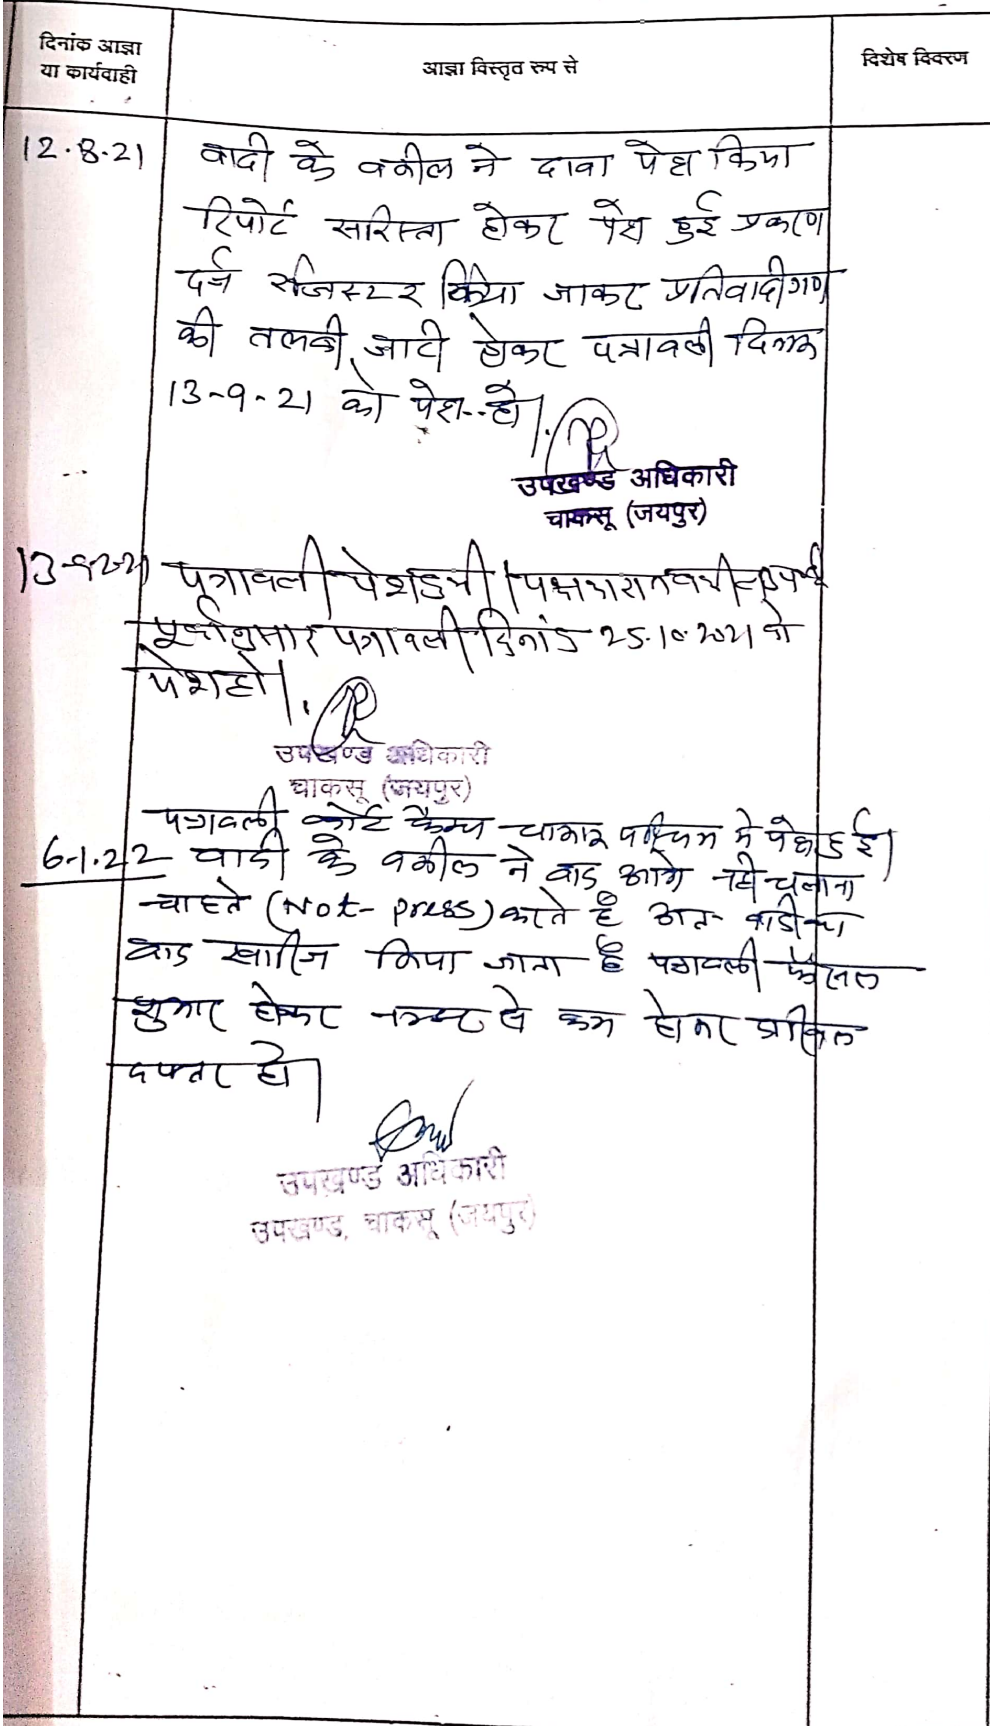 दिनांक आज्ञा
या कार्यवाही
आज्ञा विस्तृत रूप से
विशेष विवरण
12.8.21
वादी के वकील ने दावा पेश किया
रिपोर्ट सरिस्ता होकर पेश हुई प्रकरण
दर्ज रजिस्टर किया जाकर प्रतिवादीगण
की तलबी जारी होकर पत्रावली दिनांक
13-9-21 को पेश हो।
उपखण्ड अधिकारी
चाकसू (जयपुर)
पत्रावली पेश हुयी।
पत्रावली दिनांक 25.10.2021 को
पेश हो।
उपखण्ड अधिकारी
चाकसू (जयपुर)
पत्रावली कोर्ट कैम्प में पेश हुई।
6.1.22 वादी के वकील ने वाद आगे नहीं चलाना
चाहते (Not-press) करते हैं अतः वादी का
वाद खारिज किया जाता है पत्रावली फैसल
शुमार होकर नम्बर से कम होकर दाखिल
दफ्तर हो।
उपखण्ड अधिकारी
उपखण्ड, चाकसू (जयपुर)